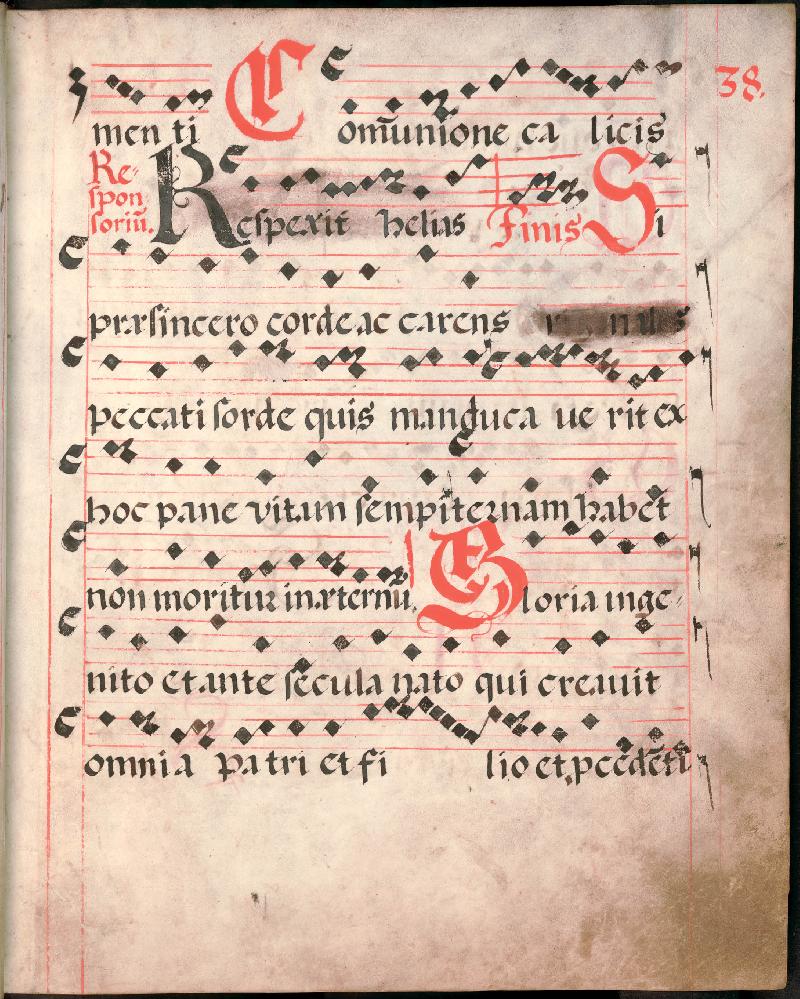 38.
men ti Com̄unione ca licis
Re-
spon
soriū. Respexit helias Finis Si
præsincero corde ac carens
peccati sorde quis manduca ue rit ex
hoc pane vitam sempiternam habet
non moritur inæternū. Gloria inge-
nito et ante secula nato qui creauit
omnia patri et fi lio et pcedēti